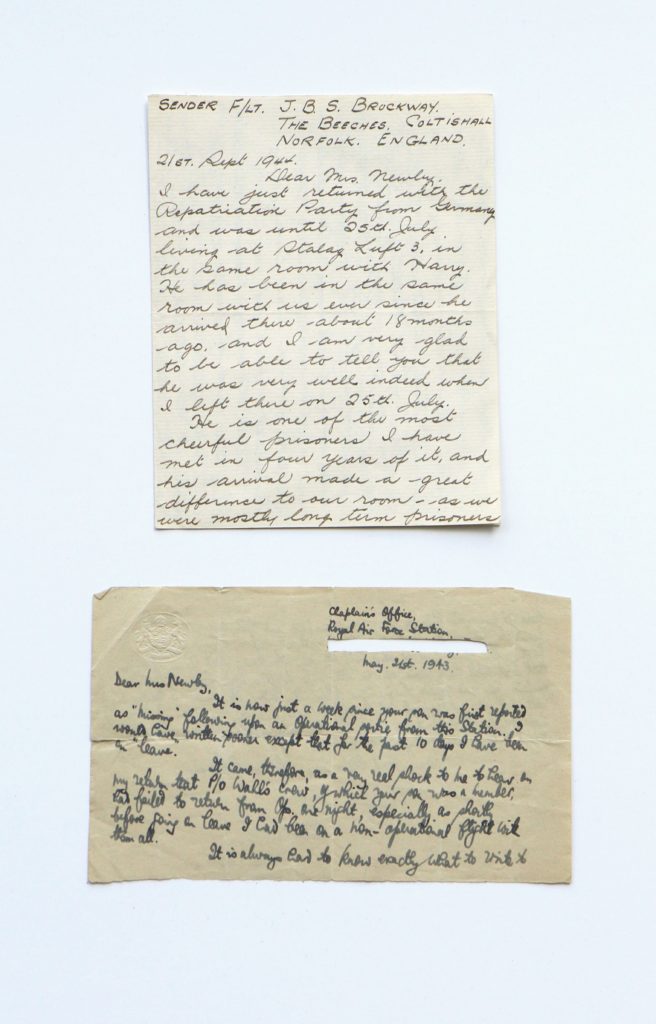 SENDER F/LT. J. B. S. BROCKWAY.
THE BEECHES, COLTISHALL
NORFOLK. ENGLAND.
21ST. Sept 1944.
Dear Mrs. Newby.
I have just returned with the
Repatriation Party from Germany
and was until 25th. July
living at Stalag Luft 3, in
the same room with Harry.
He has been in the same
room with us ever since he
arrived there about 18 months
ago, and I am very glad
to be able to tell you that
he was very well indeed when
I left there on 25th. July.
He is one of the most
cheerful prisoners I have
met in four years of it, and
his arrival made a great
difference to our room - as we
were mostly long term prisoners
Chaplain's Office,
Royal Air Force, Station,
May. 1943.
Dear Mrs Newby,
It is now just a week since your son was first reported
as "missing" following upon an operational sortie from this Station. I
would have written sooner except that for the past 10 days I have been
on "leave".
It came, therefore, as a very real shock to me to hear on
my return that P/O Wall's crew of which your son was a member,
had failed to return from Ops. one night, especially as shortly
before going on leave I had been on a non-operational flight with
them all.
It is always hard to know exactly what to write to